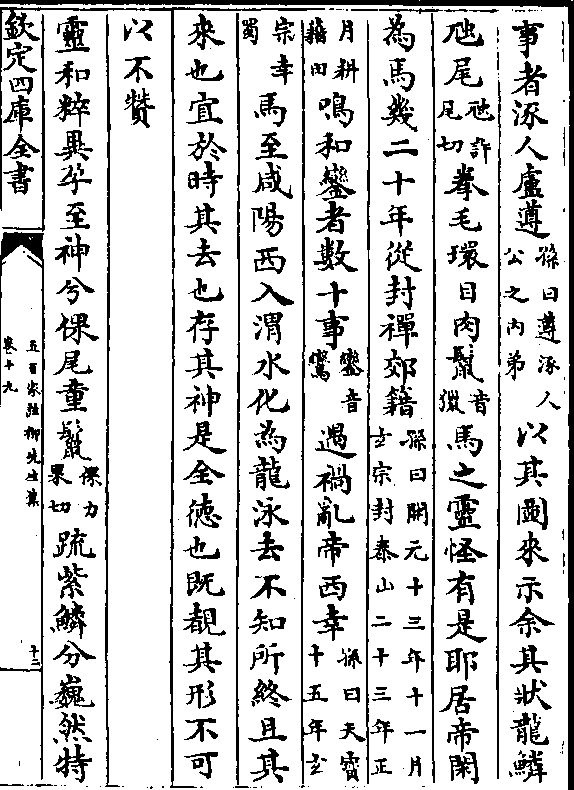 事者涿人盧遵孫曰遵涿人公之内弟以其圖來示余其狀龍鱗
虺尾虺許尾切拳毛環目肉鬛音獵馬之靈怪有是耶居帝閑
為馬幾二十年從封禪郊籍孫曰開元十三年十一月玄宗封泰山二十三年正
月耕籍田鳴和鑾者數十事鑾音鸞遇禍亂帝西幸孫曰天寶十五年玄
宗幸蜀馬至咸陽西入渭水化為龍泳去不知所終且其
來也宜於時其去也存其神是全德也既覩其形不可
以不贊
靈和粹異孕至神兮倮尾童鬛倮力果切疏紫鱗兮巍然特
欽定四庫全書
五百家註柳先生集
卷十九
十三